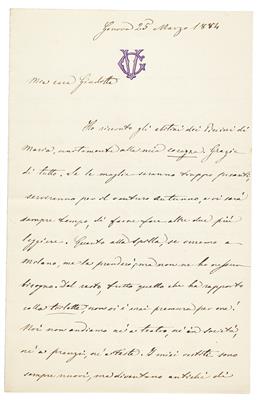 Genova 25 Marzo 1884
GV
Mia cara Giuditta
Ho ricevuto gli abitini dei Bimbi di
Maria, unitamente alla mia Grazie
di tutto. Se le maglie saranno troppo pesanti,
serviranno per il venturo autunno, e vi sarà
sempre tempo, di farne fare altre due più
leggiere. Quanto alla spilla, se verremo a
Milano, me la prenderò; ma non ne ho nessun
bisogno. Del resto, tutto quello che ha rapporto
colla toilette, non vi è mai premura per me!
Noi non andiamo nè a teatro, nè in società,
nè a pranzi, nè a feste. I miei vestiti sono
sempre nuovi, ma diventano antichi di